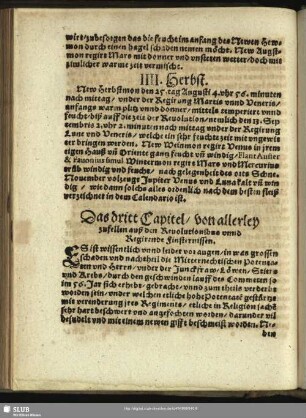 wirt/zubesorgen das die feucht im anfang des Newen Hew-
mon durch einen hagel schaden nemen möcht. New Augst-
mon regirt Mars mit donner und unstetem wetter/doch mit
zimlicher warme zeit vermischt.
IIII. Herbst.
New Herbstmon den 25. tag Augusti 4. vhr 56. minuten
nach mittag/ vnder der Regirung Martis vnnd Veneris/
anfangs warm plitz vnnd donner/ mittels temperirt vnnd
feucht/biß auff die zeit der Revolution/nemlich den 13. Sep
tembris 2. vhr 2. minuten nach mittag vnder der Regirung
Lune vnd Veneris/ welche ein sehr feuchte zeit mit ungewit
ter bringen werden. New Weinmon regirt Venus in jrem
eigen Hauß vñ Orient gantz feucht vñ windig/ flante Austro
& Fauonius simul. Wintermon regirt Mars vnd Mercurius
windig vnd feucht/ nach gelegenheit des orts Schne.
Nouember volzeugt Jupiter Venus vnd Luna kalt vñ win
dig/ wie dann solchs alles ordenlich nach dem besten fleiß
verzeichnet in dem Calendario ist.
Das dritt Capitel/ von allerley
zufellen auff den Revolutionibus vnnd
Regirende Finsternissen.
ES ist wissentlich vnnd leider vor augen/ in was grossen
schaden vnd nachtheil die Mitternechtischen Potenta-
ten vnd Herrn/ vnder der Junckfraw/ Löwen/ Stiers
vnd Krebs/ durch den geschwinden lauff des Cometen so
im 56. Jar sich erhebt/ gebracht/ vnnd zum theils verderbt
worden sein/ vnder welchen etliche hohe Potentaten gestürtzt
mit verenderung jres Regiments/ etliche in Religion sachē
sehr hart beschwert vnd angefochten worden/ darunder vil
besudelt vnd mit einem newen gifft beschmeist worden. Ne-
ben
SLUB
Wir führen Wissen.